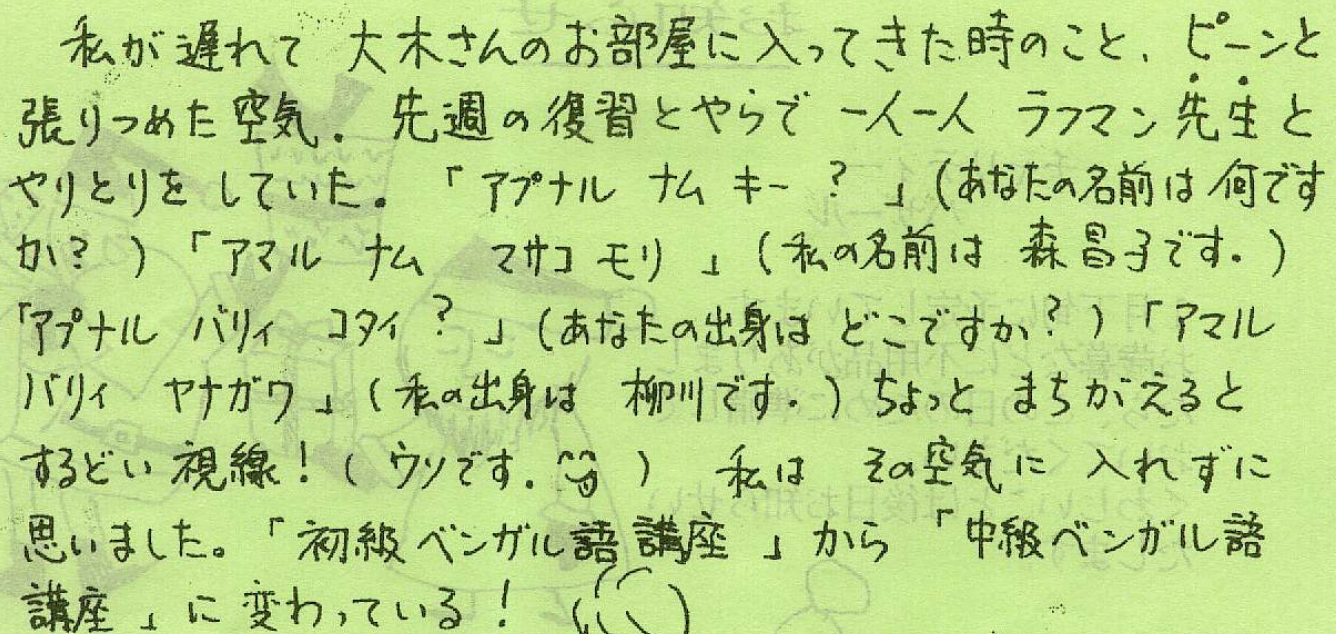 私が遅れて 大木さんのお部屋に入ってきた時のこと、ピーンと
張りつめた空気。先週の復習とやらで 一人一人 ラフマン先生と
やりとりをしていた。「アプナル ナム キー?」(あなたの名前は何です
か?)「アマル ナム マサコ モリ」(私の名前は 森昌子です。)
「アプナル バリィ コタイ?」(あなたの出身は どこですか?)「アマル
バリィ ヤナガワ」(私の出身は 柳川です。)ちょっと まちがえると
するどい視線!(ウソです。)私は その空気に 入れずに
思いました。「初級ベンガル語講座」から「中級ベンガル語
講座」に変わっている!